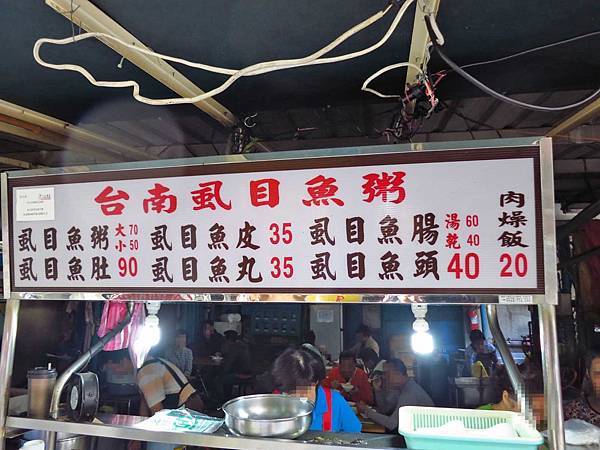 台南虱目魚粥
虱目魚粥 大70 小50
虱目魚皮 35
虱目魚腸 湯60 乾40
虱目魚肚 90
虱目魚丸 35
虱目魚頭 40
肉燥飯 20